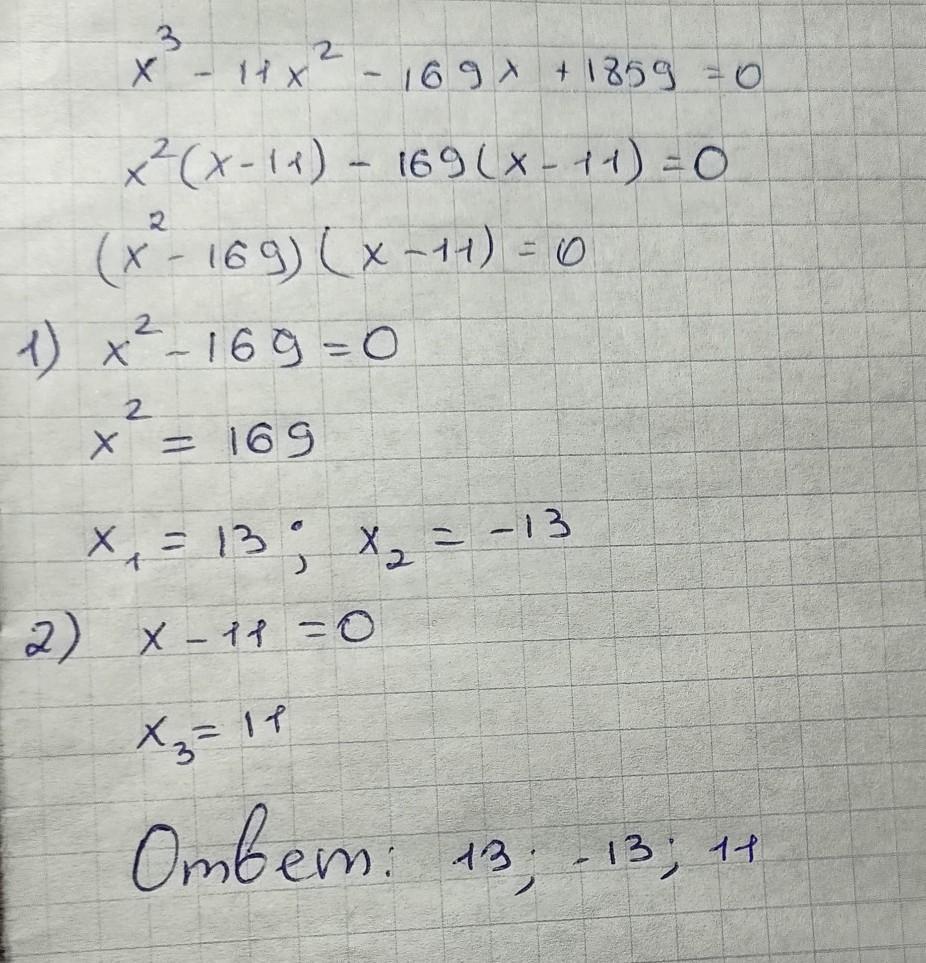 x³ - 11x² - 169x + 1859 = 0
x²(x-11) - 169(x-11) = 0
(x² - 169)(x-11) = 0
1) x² - 169 = 0
x² = 169
x₁ = 13; x₂ = -13
2) x - 11 = 0
x₃ = 11
Ответ: 13; -13; 11